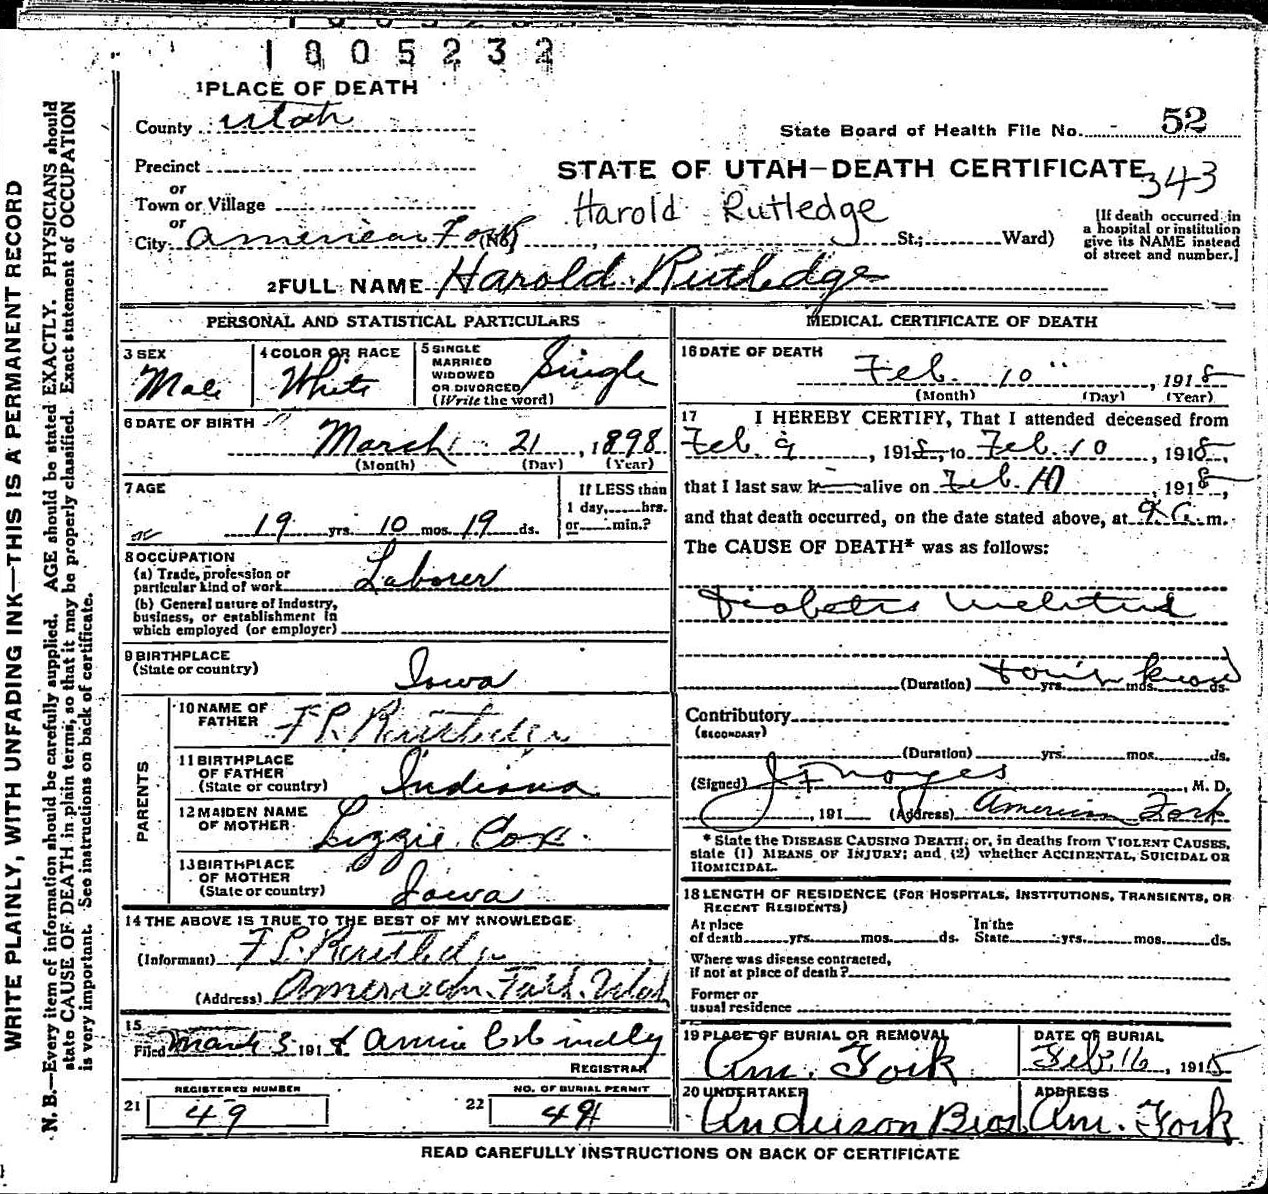 1805232
1 PLACE OF DEATH
County Utah
State Board of Health File No. 52
Precinct
STATE OF UTAH—DEATH CERTIFICATE 343
or
Town or Village
Harold Rutledge
or
City American Fork (No. St.; Ward)
[If death occurred in
a hospital or institution
give its NAME instead
of street and number.]
2 FULL NAME Harold Rutledge
PERSONAL AND STATISTICAL PARTICULARS
3 SEX
Male
4 COLOR OR RACE
White
5 SINGLE
MARRIED
WIDOWED
OR DIVORCED
(Write the word)
Single
6 DATE OF BIRTH
March 21, 1898
(Month) (Day) (Year)
7 AGE
19 yrs. 10 mos. 19 ds.
If LESS than
1 day, hrs.
or min.?
8 OCCUPATION
(a) Trade, profession or
particular kind of work Laborer
(b) General nature of industry,
business, or establishment in
which employed (or employer)
9 BIRTHPLACE
(State or country) Iowa
PARENTS
10 NAME OF
FATHER F P. Rutledge
11 BIRTHPLACE
OF FATHER
(State or country) Indiana
12 MAIDEN NAME
OF MOTHER Lizzie Cox
13 BIRTHPLACE
OF MOTHER
(State or country) Iowa
14 THE ABOVE IS TRUE TO THE BEST OF MY KNOWLEDGE
(Informant) F P. Rutledge
(Address) American Fork. Utah
15
Filed March 5 1918 Annie
REGISTRAR
REGISTERED NUMBER
21 49
NO. OF BURIAL PERMIT
22 49
MEDICAL CERTIFICATE OF DEATH
16 DATE OF DEATH
Feb. 10, 1918
(Month) (Day) (Year)
17 I HEREBY CERTIFY, That I attended deceased from
Feb 9, 1918, to Feb. 10, 1918,
that I last saw h alive on Feb. 10, 1918,
and that death occurred, on the date stated above, at 9 a. m.
The CAUSE OF DEATH* was as follows:
Diabetes Mellitus
(Duration) don't know yrs. mos. ds.
Contributory
(SECONDARY)
(Duration) yrs. mos. ds.
(Signed) J F Noyes, M. D.
, 191 (Address) American Fork
* State the DISEASE CAUSING DEATH; or, in deaths from VIOLENT CAUSES,
state (1) MEANS OF INJURY; and (2) whether ACCIDENTAL, SUICIDAL OR
HOMICIDAL.
18 LENGTH OF RESIDENCE (FOR HOSPITALS, INSTITUTIONS, TRANSIENTS, OR
RECENT RESIDENTS)
At place In the
of death yrs. mos. ds. State yrs. mos. ds.
Where was disease contracted,
if not at place of death?
Former or
usual residence
19 PLACE OF BURIAL OR REMOVAL
Am. Fork
DATE OF BURIAL
Feb. 16, 1918
20 UNDERTAKER
Anderson Bros
ADDRESS
Am. Fork
READ CAREFULLY INSTRUCTIONS ON BACK OF CERTIFICATE
WRITE PLAINLY, WITH UNFADING INK—THIS IS A PERMANENT RECORD
N. B.—Every item of information should be carefully supplied. AGE should be stated EXACTLY. PHYSICIANS should
state CAUSE OF DEATH in plain terms, so that it may be properly classified. Exact statement of OCCUPATION
is very important. See instructions on back of certificate.